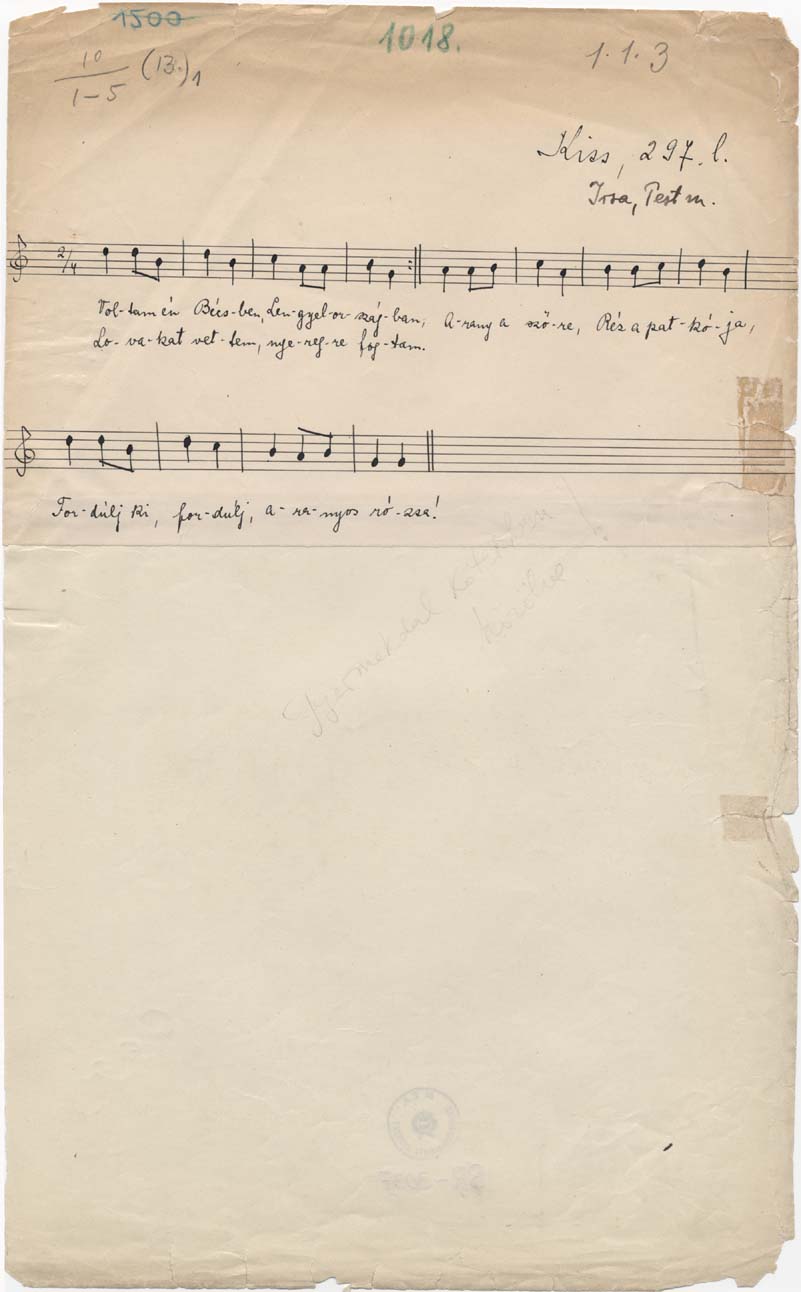 1500
1018.
1.1.3
10
(13.)1
1-5
Kiss, 297. l.
Irsa, Pest m.
2/4
Vol-tam én Bécs-ben, Len-gyel-or-szág-ban, A-rany a sző-re, Réz a pat-kó-ja,
Lo-va-kat vet-tem, nye-reg-re fog-tam.
For-dúlj ki, for-dulj, a-ra-nyos ró-zsa!
Gyermekdal kötetben
közölve!